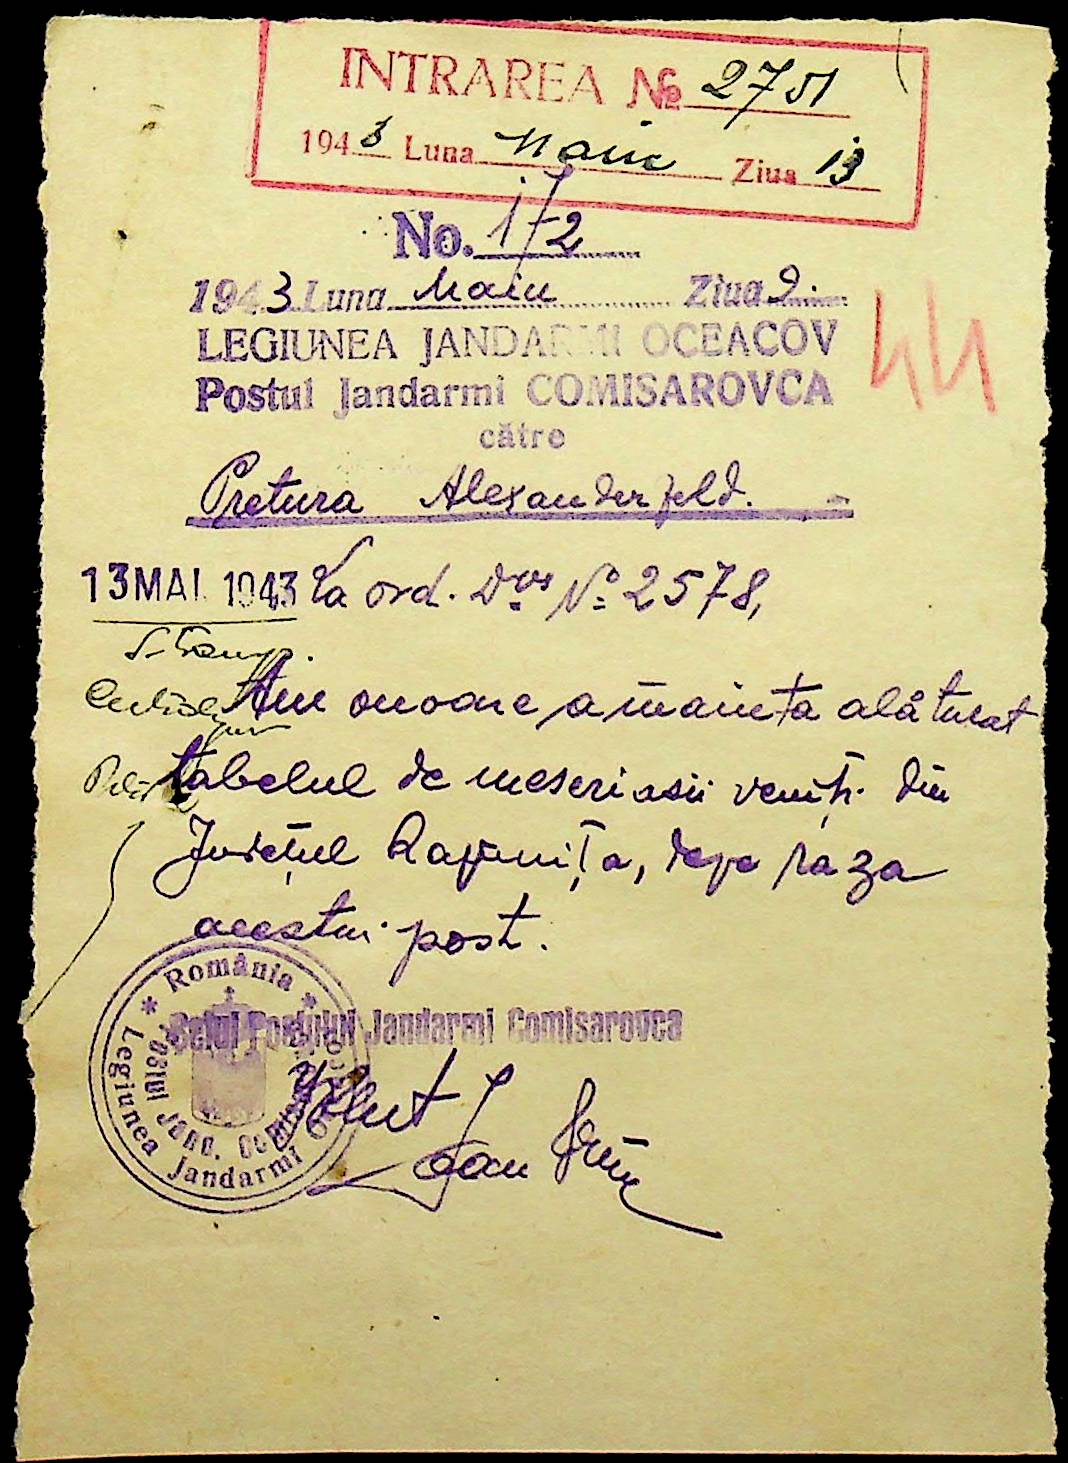 INTRAREA No 2751
1943 Luna Maiu Ziua 13
No. 172
1943 Luna Maiu Ziua 9.
LEGIUNEA JANDARMI OCEACOV
Postul Jandarmi COMISAROVCA
către
Pretura Alexanderfeld.
44
13 MAI. 1943 La ord. Dvs No 2578,
Am onoare a înainta alăturat
tabelul de meseriasii veniți din
Județul Râbnița, depe raza
acestui post.
Seful Postului Jandarmi Comisarovca
România
Legiunea Jandarmi Oceacov
Postul Jand. Comisarovca